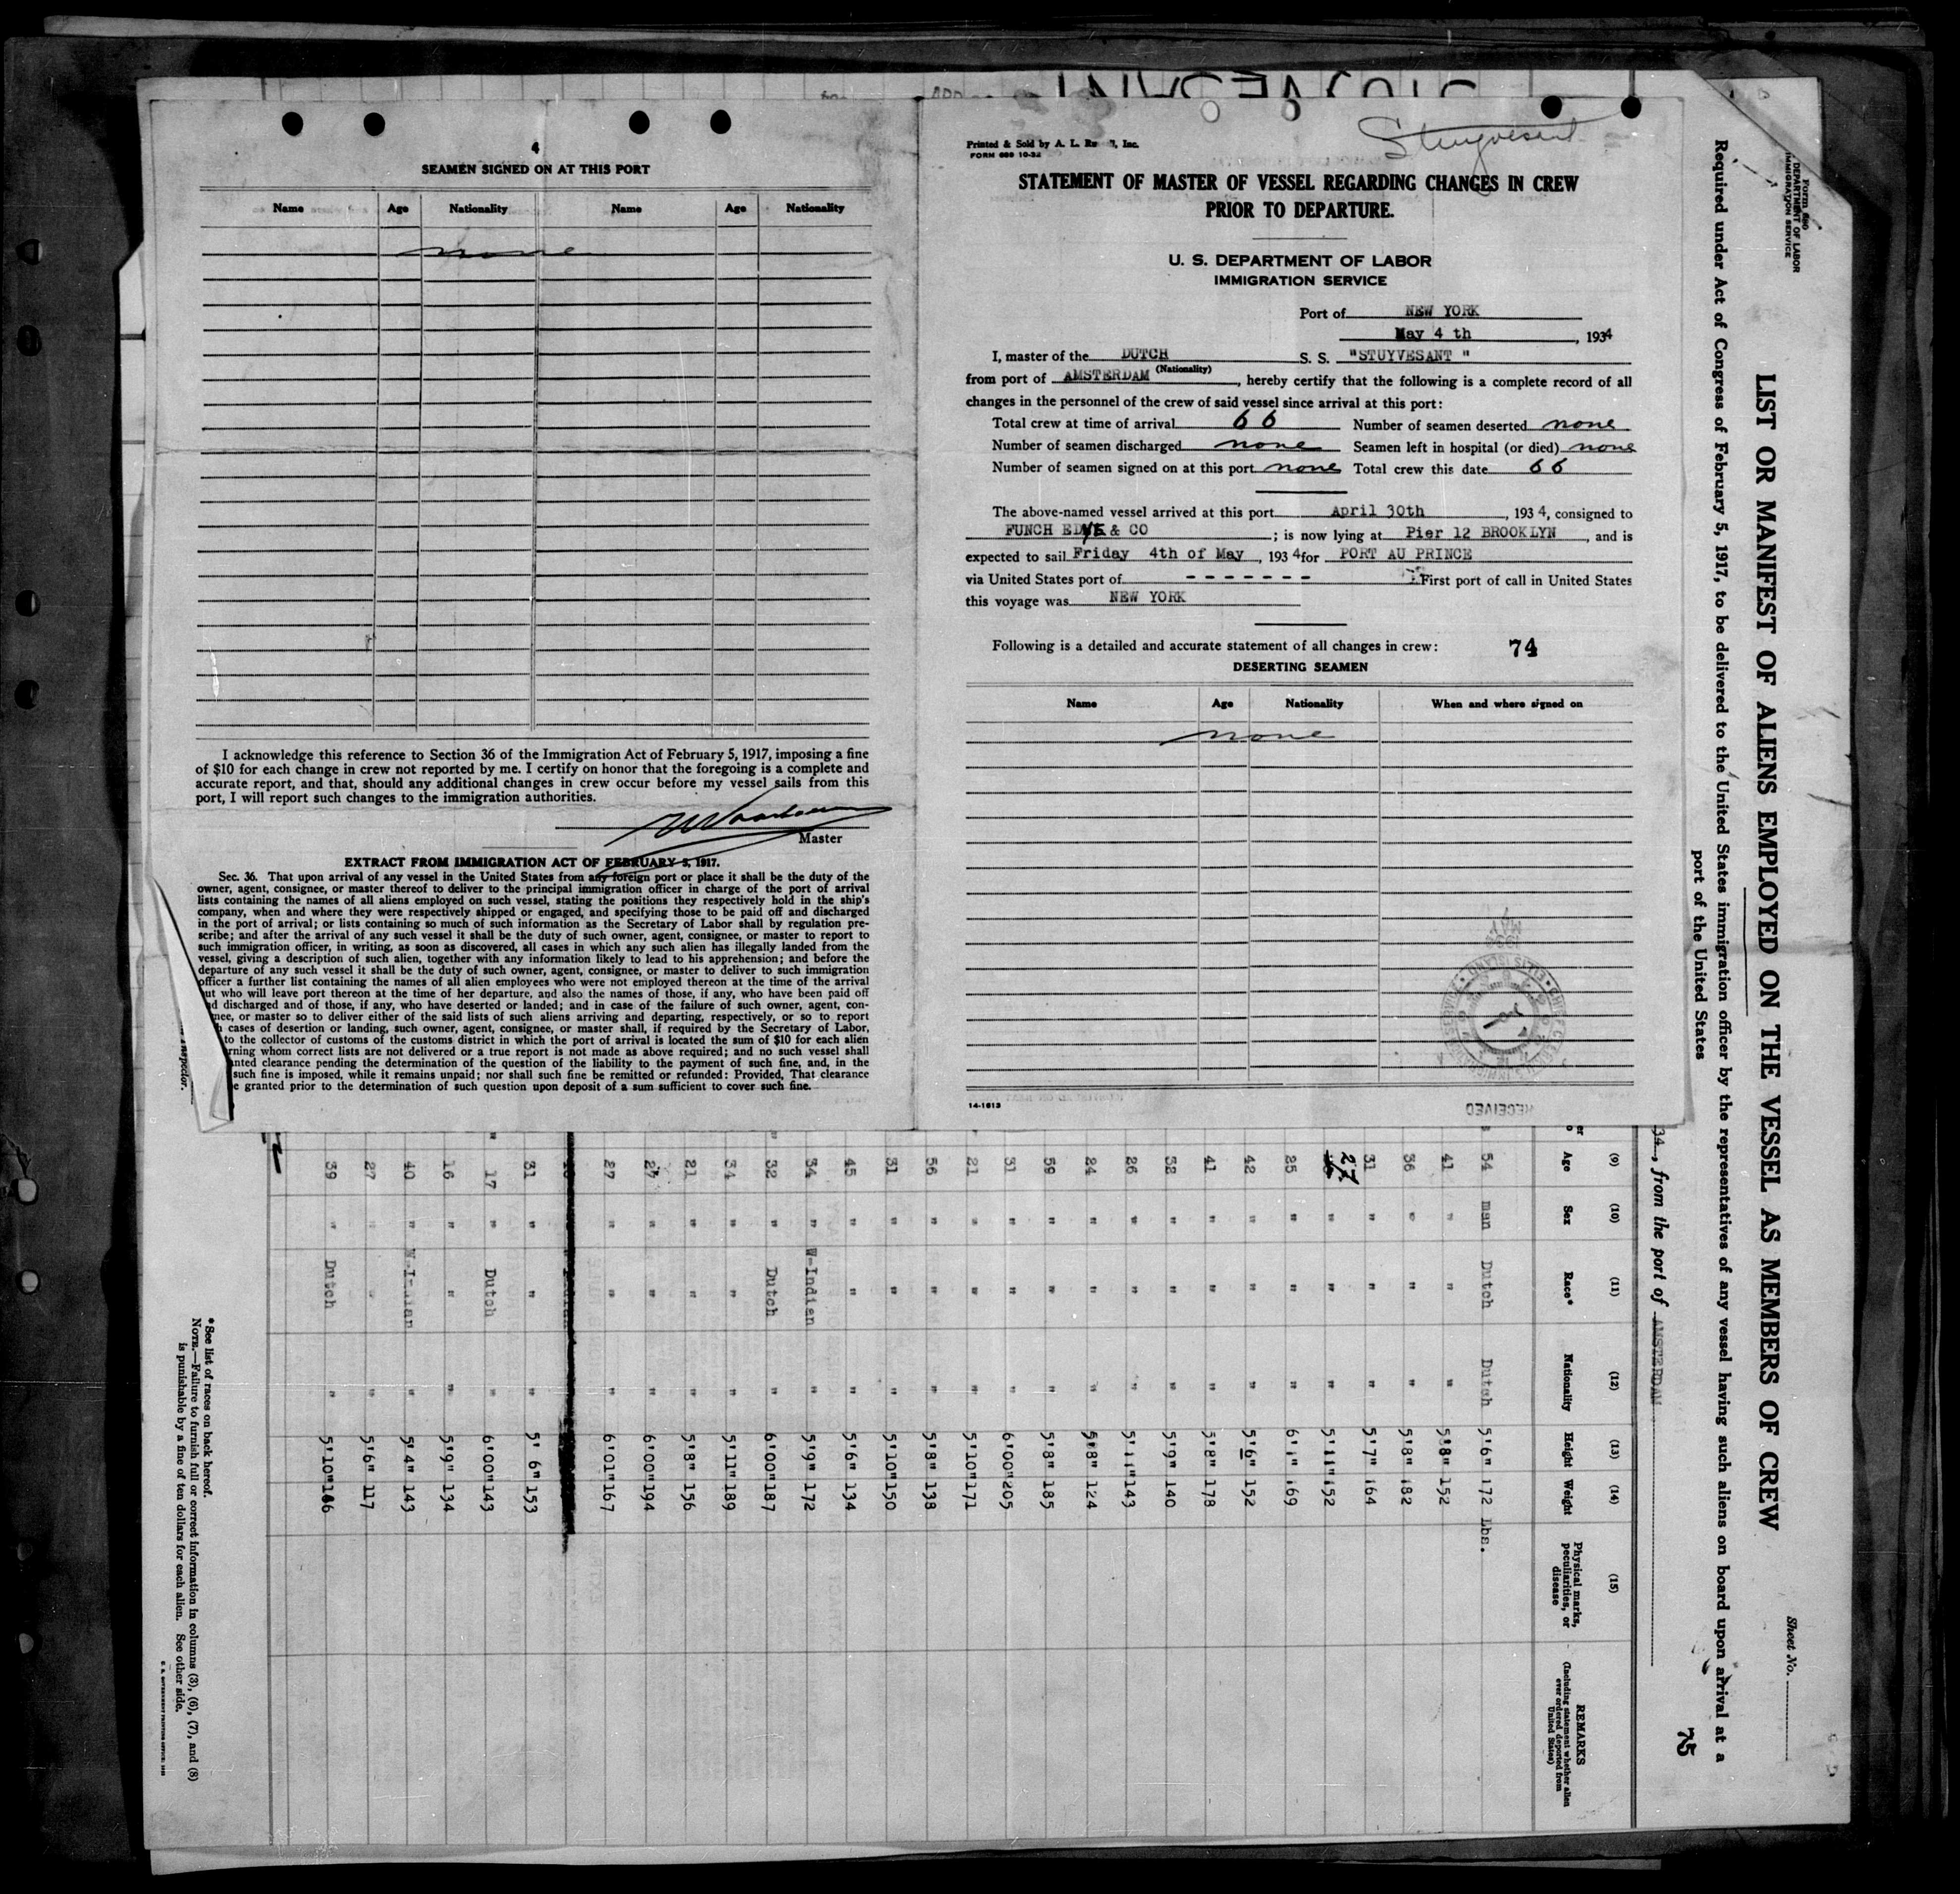 4
SEAMEN SIGNED ON AT THIS PORT
Name Age Nationality Name Age Nationality
none
I acknowledge this reference to Section 36 of the Immigration Act of February 5, 1917, imposing a fine
of $10 for each change in crew not reported by me. I certify on honor that the foregoing is a complete and
accurate report, and that, should any additional changes in crew occur before my vessel sails from this
port, I will report such changes to the immigration authorities.
Master
EXTRACT FROM IMMIGRATION ACT OF FEBRUARY 5, 1917.
Sec. 36. That upon arrival of any vessel in the United States from any foreign port or place it shall be the duty of the
owner, agent, consignee, or master thereof to deliver to the principal immigration officer in charge of the port of arrival
lists containing the names of all aliens employed on such vessel, stating the positions they respectively hold in the ship's
company, when and where they were respectively shipped or engaged, and specifying those to be paid off and discharged
in the port of arrival; or lists containing so much of such information as the Secretary of Labor shall by regulation pre-
scribe; and after the arrival of any such vessel it shall be the duty of such owner, agent, consignee, or master to report to
such immigration officer, in writing, as soon as discovered, all cases in which any such alien has illegally landed from the
vessel, giving a description of such alien, together with any information likely to lead to his apprehension; and before the
departure of any such vessel it shall be the duty of such owner, agent, consignee, or master to deliver to such immigration
officer a further list containing the names of all alien employees who were not employed thereon at the time of the arrival
ut who will leave port thereon at the time of her departure, and also the names of those, if any, who have been paid off
d discharged and of those, if any, who have deserted or landed; and in case of the failure of such owner, agent, con-
nee, or master so to deliver either of the said lists of such aliens arriving and departing, respectively, or so to report
cases of desertion or landing, such owner, agent, consignee, or master shall, if required by the Secretary of Labor,
to the collector of customs of the customs district in which the port of arrival is located the sum of $10 for each alien
rning whom correct lists are not delivered or a true report is not made as above required; and no such vessel shall
nted clearance pending the determination of the question of the liability to the payment of such fine, and, in the
such fine is imposed, while it remains unpaid; nor shall such fine be remitted or refunded: Provided, That clearance
e granted prior to the determination of such question upon deposit of a sum sufficient to cover such fine.
Inspector.
Stuyvesant
Printed & Sold by A. L. Ru l, Inc.
FORM 689 10-32
STATEMENT OF MASTER OF VESSEL REGARDING CHANGES IN CREW
PRIOR TO DEPARTURE.
U. S. DEPARTMENT OF LABOR
IMMIGRATION SERVICE
Port of NEW YORK
May 4 th, 1934
I, master of the DUTCH S. S. "STUYVESANT "
(Nationality)
from port of AMSTERDAM, hereby certify that the following is a complete record of all
changes in the personnel of the crew of said vessel since arrival at this port:
Total crew at time of arrival 66 Number of seamen deserted none
Number of seamen discharged none Seamen left in hospital (or died) none
Number of seamen signed on at this port none Total crew this date 66
The above-named vessel arrived at this port April 30th, 1934, consigned to
FUNCH EDYE & CO; is now lying at Pier 12 BROOKLYN, and is
expected to sail Friday 4th of May, 1934 for PORT AU PRINCE
via United States port of ------- First port of call in United States
this voyage was NEW YORK
Following is a detailed and accurate statement of all changes in crew: 74
DESERTING SEAMEN
Name Age Nationality When and where signed on
none
14-1613
RECEIVED
Form 680
DEPARTMENT OF LABOR
IMMIGRATION SERVICE
Sheet No.
LIST OR MANIFEST OF ALIENS EMPLOYED ON THE VESSEL AS MEMBERS OF CREW
Required under Act of Congress of February 5, 1917, to be delivered to the United States immigration officer by the representatives of any vessel having such aliens on board upon arrival at a
port of the United States
75
34, from the port of AMSTERDAM
(9) (10) (11) (12) (13) (14) (15)
Age Sex Race* Nationality Height Weight Physical marks, peculiarities, or disease REMARKS
(Including statement whether alien ever ordered deported from United States)
54 man Dutch Dutch 5'6" 172 Lbs.
41 " " " 5'8" 152
36 " " " 5'8" 182
31 " " " 5'7" 164
27 " " " 5'11" 152
25 " " " 6'1" 169
42 " " " 5'6" 152
41 " " " 5'8" 178
32 " " " 5'9" 140
26 " " " 5'11" 143
24 " " " 5'8" 124
59 " " " 5'8" 185
31 " " " 6'00" 205
21 " " " 5'10" 171
56 " " " 5'8" 138
31 " " " 5'10" 150
45 " " " 5'6" 134
34 " W-Indian " 5'9" 172
32 " Dutch " 6'00" 187
34 " " " 5'11" 189
21 " " " 5'8" 156
27 " " " 6'00" 194
27 " " " 6'01" 167
31 " " " 5'6" 153
17 " Dutch " 6'00" 143
16 " " " 5'9" 134
40 " W-Indian " 5'4" 143
27 " " " 5'6" 117
39 " Dutch " 5'10" 166
*See list of races on back hereof.
NOTE.—Failure to furnish full or correct information in columns (3), (6), (7), and (8)
is punishable by a fine of ten dollars for each alien. See other side.